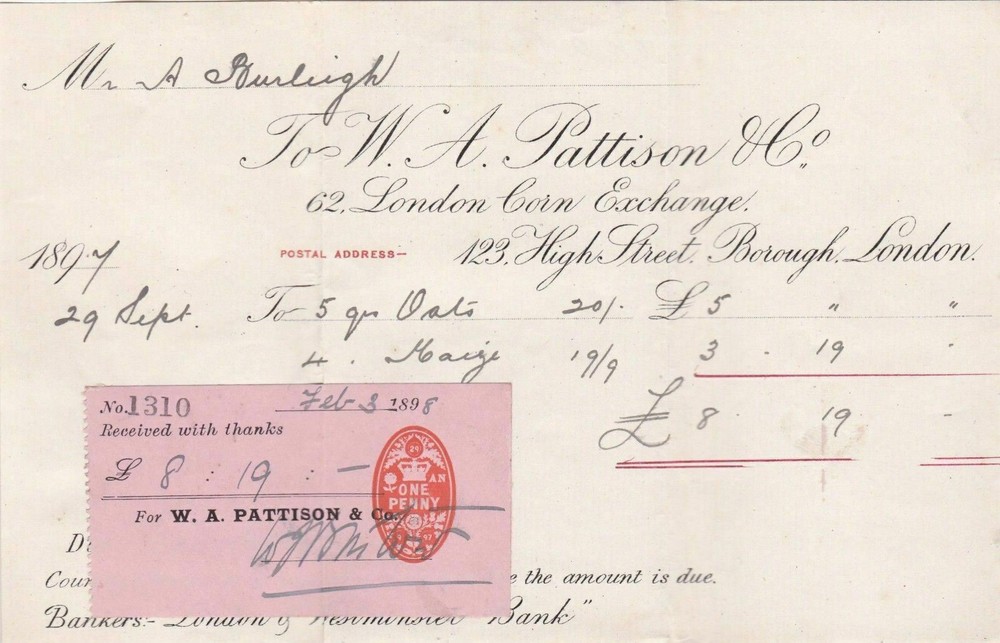 Mr A Burleigh
To W. A. Pattison & Co.,
62, London Corn Exchange.
1897
POSTAL ADDRESS— 123, High Street, Borough, London.
29 Sept. To 5 qrs Oats 20/- £ 5 " "
4 . Maize 19/9 3 . 19 .
£ 8 . 19 -
No. 1310 Feb 3 1898
Received with thanks
£ 8 : 19 : -
29
AN
ONE
PENNY
97
For W. A. PATTISON & Co.
the amount is due.
Bankers:- London & Westminster Bank"